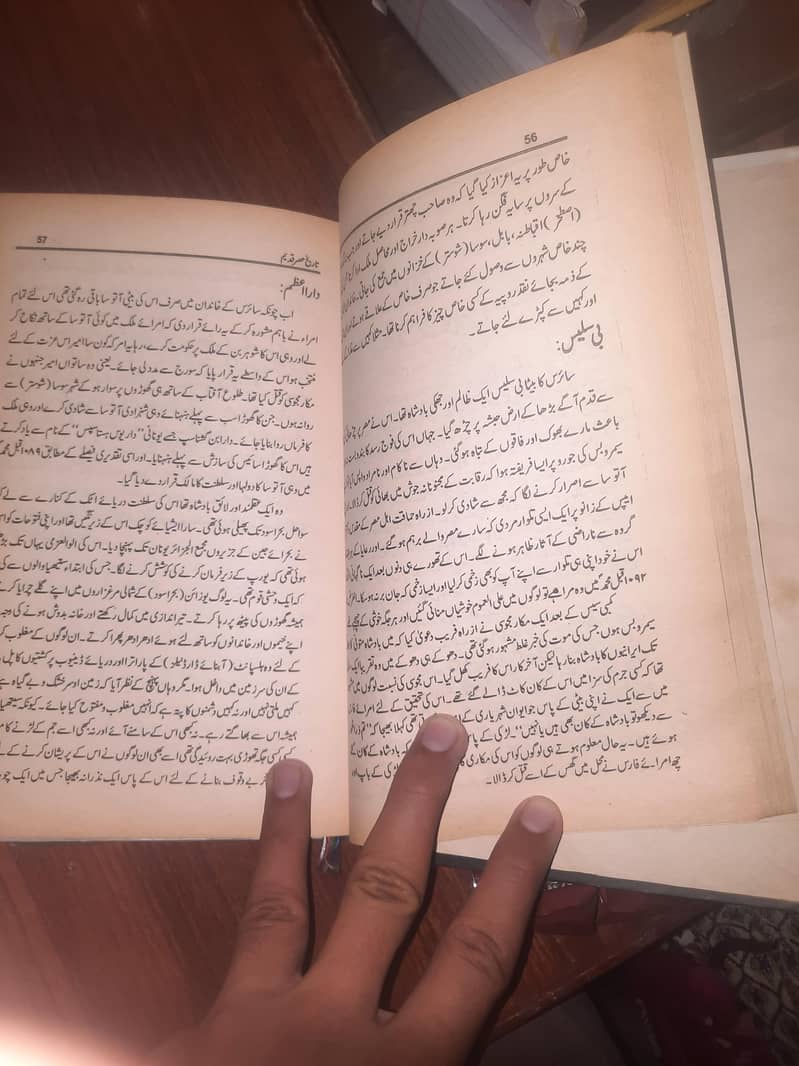 56
خاص طور پر یہ اعزاز کیا گیا کہ وہ صاحب چھتر قرار دیے جاتے اور
کے سروں پر سایہ فگن رہا کرتا۔ ہر صوبہ دار خراج اور محاصل ملک ادا کرتا
(اصطخر) اقباطنہ، بابل، سوسا (شوستر) کے خزانوں میں جمع کی جاتی
چند خاص شہروں سے وصول کئے جاتے جو صرف خاص کے علاقے ہوتے اور
کے ذمہ بجائے نقد روپیہ کے کسی خاص چیز کا فراہم کرنا تھا۔ مثلاً کہیں سے
اور کہیں سے کپڑے لئے جاتے۔
بی سلیس:
سائرس کا بیٹا بی سلیس ایک ظالم اور جھکی بادشاہ تھا۔ اس نے مصر پر چڑھائی
سے قدم آگے بڑھا کے ارض حبشہ پر چڑھ گیا۔ جہاں اس کی فوج رسد کا بندوبست
باعث مارے بھوک اور فاقوں کے تباہ ہو گئی۔ وہاں سے ناکام اور نامراد واپس
سیمردیس کی جورو پر ایسا فریفتہ ہوا کہ رقابت کے مجنونانہ جوش میں بھائی کو قتل کر ڈالا
آتوسا سے اصرار کرنے لگا کہ مجھ سے شادی کر لو۔ از راہ حماقت اہل مصر کے
ایپس کے زانو پر ایک ایسی تلوار مردی کہ سارے مصر والے برہم ہو گئے۔ اور رعایا کے
گروہ سے ناراضی کے آثار ظاہر ہونے لگے۔ اس کے تھورے ہی دنوں بعد ایک
اس نے خود اپنی ہی تلوار سے اپنے آپ کو بھی زخمی کر لیا اور ایسا زخمی کہ جان بر نہ ہو سکا۔
۱۰۹۲ قبل محمدؐ میں وہ مرا ہے تو لوگوں میں علی العموم خوشیاں منائی گئیں اور ہر جگہ خوشی کے
کمبی سیس کے بعد ایک مکار مجوسی نے از راہ فریب دعویٰ کیا کہ میں بادشاہ
سیمردیس ہوں جس کی موت کی خبر غلط مشہور ہو گئی تھی۔ دھوکے ہی دھوکے میں وہ تقریباً ایک
تک ایرانیوں کا بادشاہ بنا رہا لیکن آخر کار اس کا فریب کھل گیا۔ اس مجوسی کی نسبت لوگوں میں
تھا کہ کسی جرم کی سزا میں اس کے کان کاٹ ڈالے گئے تھے۔ اس کی تحقیق کے لئے امرائے
میں سے ایک نے اپنی بیٹی کے پاس جو ایوان شہر یاری کے تھی کہلا بھیجا کہ "تم
سے دیکھو تو بادشاہ کے کان بھی ہیں یا نہیں" لڑکی کے پاس بادشاہ کے کان
ہوئے ہیں۔ یہ حال معلوم ہوتے ہی لوگوں کو اس کی مکاری کا لڑکی کے باپ اور
چھ امرائے فارس نے محل میں گھس کے اسے قتل کر ڈالا۔
تاریخ عصر قدیم
57
دارا اعظم:
اب چونکہ سائرس کے خاندان میں صرف اس کی بیٹی آتوسا باقی رہ گئی تھی اس لئے تمام
امراء نے باہم مشورہ کر کے یہ رائے قرار دی کہ امرائے ملک میں کوئی آتوسا کے ساتھ نکاح کر
لے اور وہی اس کا شوہر بن کے ملک پر حکومت کرے۔ رہا یہ امر کہ کون سا امیر اس عزت کے لئے
منتخب ہو اس کے واسطے یہ قرار پایا کہ سورج سے مدد لی جائے۔ یعنی وہ ساتواں امیر جنہوں نے
مکار مجوسی کو قتل کیا تھا۔ طلوع آفتاب کے ساتھ ہی گھوڑوں پر سوار ہو کے شہر سوسا (شوستر) سے
روانہ ہوں۔ جن کا گھوڑا سب سے پہلے ہنہنائے وہی شہزادی آتوسا سے شادی کرے اور وہی ملک
کا فرماں روا بنایا جائے۔ دارا بن گشتاسپ جسے یونانی "داریوس ہستاسپس" کے نام سے یاد کرتے
ہیں اس کا گھوڑا سائیس کی سازش سے پہلے ہنہنایا۔ اور اسی تقدیری فیصلے کے مطابق ۱۰۸۹ قبل محمدؐ
میں وہی آتوسا کا دولہا اور سلطنت کا مالک قرار دے دیا گیا۔
وہ ایک عقلمند اور لائق بادشاہ تھا اس کی سلطنت دریائے اٹک کے کنارے سے لے کر
سواحل بحر اسود تک پھیلی ہوئی تھی۔ سارا ایشیائے کوچک اس کے زیر نگیں تھا اور اپنی فتوحات کو اس
نے بحر ائے جین کے جزیروں مجمع الجزائر یونان تک پہنچا دیا۔ اس کی الوالعزمی یہاں تک بڑھی
ہوئی تھی کہ یورپ کے زیر فرمان کرنے کی کوشش کرنے لگا۔ جس کی ابتداء سیتھیا والوں سے کی
کہ ایک وحشی قوم تھی۔ یہ لوگ یوزائن (بحر اسود) کے شمالی مرغزاروں میں اپنے گلے چرایا کرتے
ہمیشہ گھوڑوں کی پیٹھ پر رہا کرتے۔ تیر اندازی میں کمال رکھتے اور خانہ بدوش ہونے کی وجہ سے
اپنے خیموں اور خاندانوں کو ساتھ لئے ہوئے ادھر ادھر پھرا کرتے۔ ان لوگوں کے مغلوب کرنے
کے لئے وہ ہلسپانٹ (آبنائے ڈارڈنیلز) کے پار اترا اور دریائے ڈینیوب پر کشتیوں کا پل
کے ان کی سرزمین میں داخل ہوا۔ مگر وہاں پہنچ کے نظر آیا کہ زمین اوسر خشک و بے گیاہ ہے
کہیں ملتی نہیں اور نہ کہیں دشمنوں کا پتہ ہے کہ انہیں مغلوب و مفتوح کیا جائے۔ کیونکہ سیتھیا
ہمیشہ اس سے بھاگتے رہے۔ نہ کبھی اس کے سامنے آئے اور نہ کبھی اسے جم کے لڑنے کا
کسی جگہ تھوڑی بہت روئیدگی تھی اسے بھی ان لوگوں نے اس کے پریشان کرنے کے
بے وقوف بنانے کے لئے اس کے پاس ایک نذرانہ بھیجا جس میں ایک